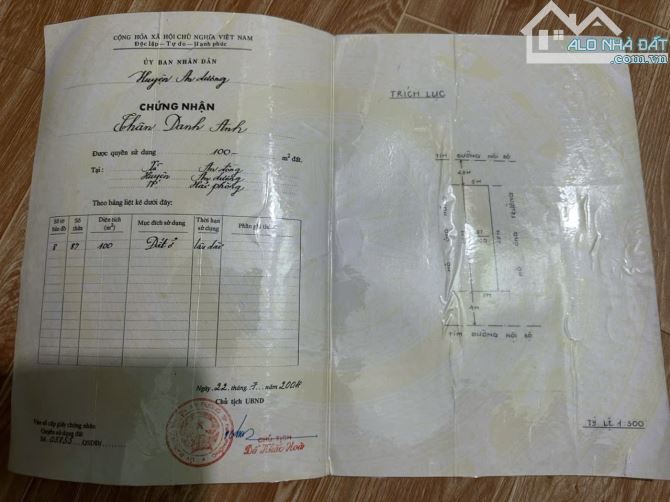 CỘNG HÒA XÃ HỘI CHỦ NGHĨA VIỆT NAM
Độc lập - Tự do - Hạnh phúc
ỦY BAN NHÂN DÂN
Huyện An dương
CHỨNG NHẬN
Thân Danh Anh
Được quyền sử dụng 100 m² đất.
Tại: Xã An đồng
Huyện An dương
TP Hải phòng
Theo bảng liệt kê dưới đây:
Số tờ bản đồ Số thửa Diện tích (m²) Mục đích sử dụng Thời hạn sử dụng Phần ghi thêm
8 87 100 Đất ở lâu dài
Ngày 22 tháng 7 năm 2004
Chủ tịch UBND
Vào sổ cấp giấy chứng nhận
Quyền sử dụng đất
Số 03855 QSDĐ/
CHỦ TỊCH
Đỗ Khắc Hoài
ALO NHÀ ĐẤT
.com.vn
TRÍCH LỤC
TIM ĐƯỜNG NỘI BỘ
5M
87
100
HỘ ÔNG TRƯỜNG
HỘ ÔNG
5M
4M
TIM ĐƯỜNG NỘI BỘ
TỶ LỆ 1:500